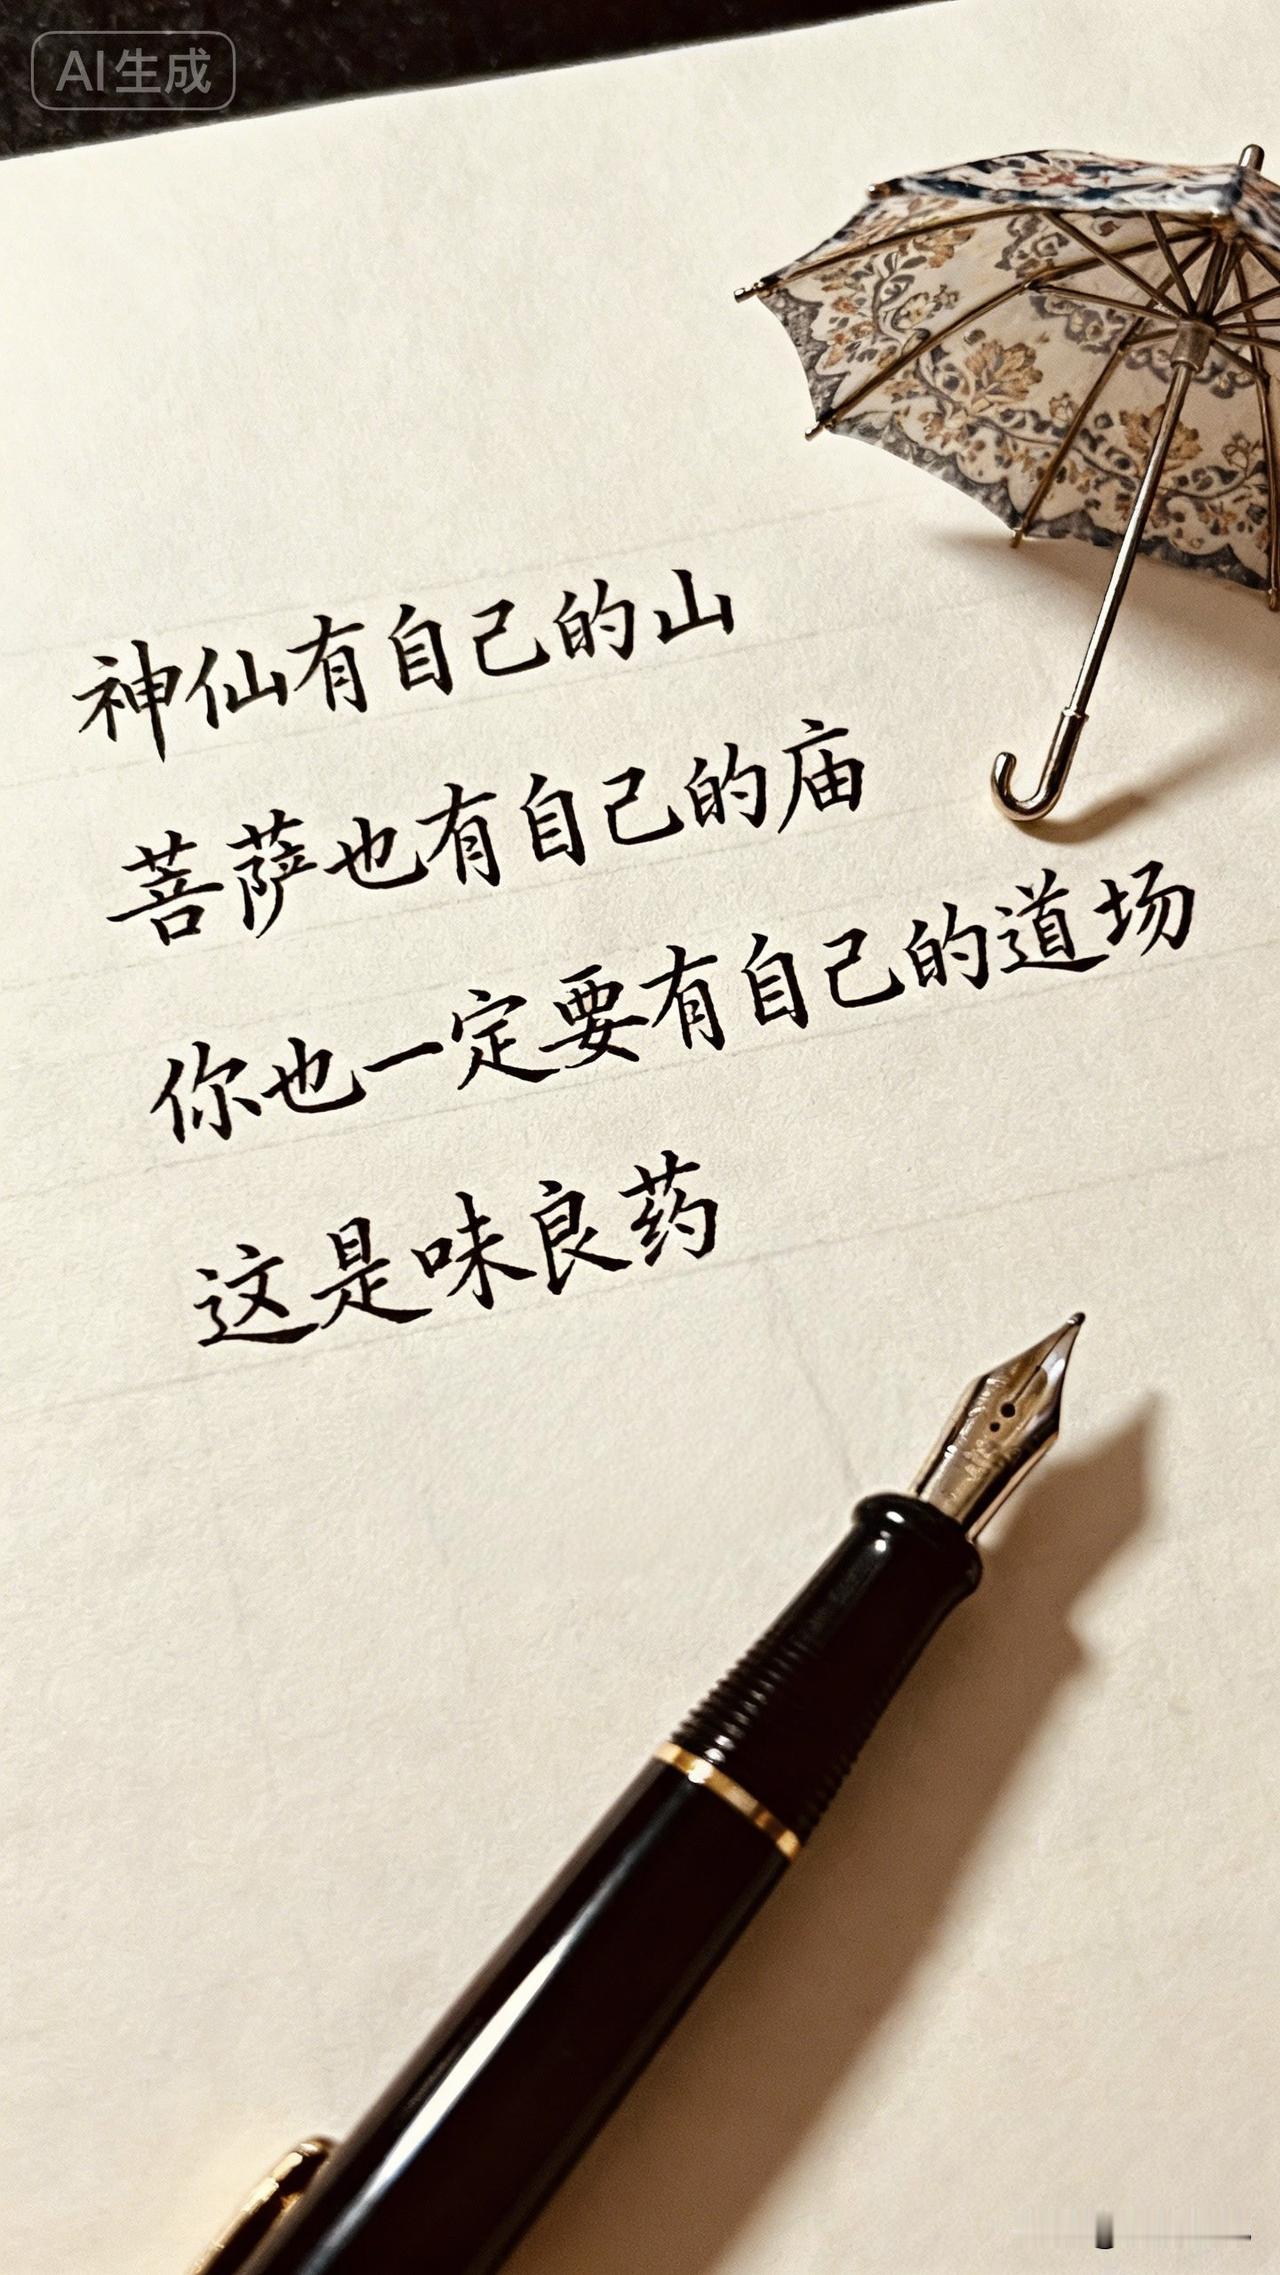 AI生成
神仙有自己的山
菩萨也有自己的庙
你也一定要有自己的道场
这是味良药